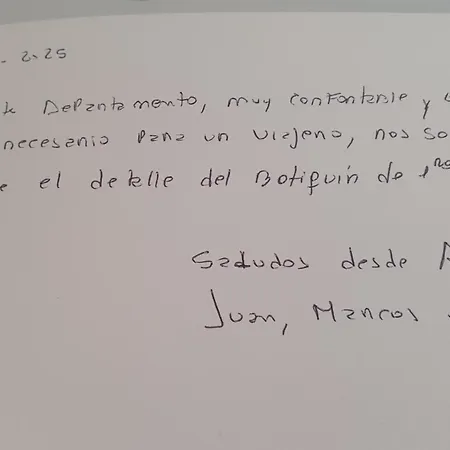 - 2.25
Departamento, muy confortable y
necesario para un viajero, nos so
e el detalle del Botiquín de 1ros
Saludos desde A
Juan, Marcos